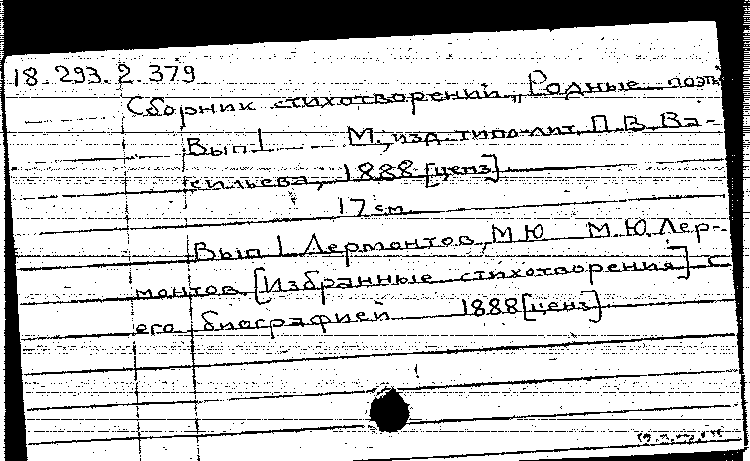 18.293.2.379
Сборник стихотворений „Родные поэты
Вып I М., изд. типо-лит. П.В. Ва-
сильева, 1888 [ценз]
17 см
Вып I Лермонтов, М Ю М.Ю. Лер-
монтов [Избранные стихотворения] с
его биографией 1888 [ценз]